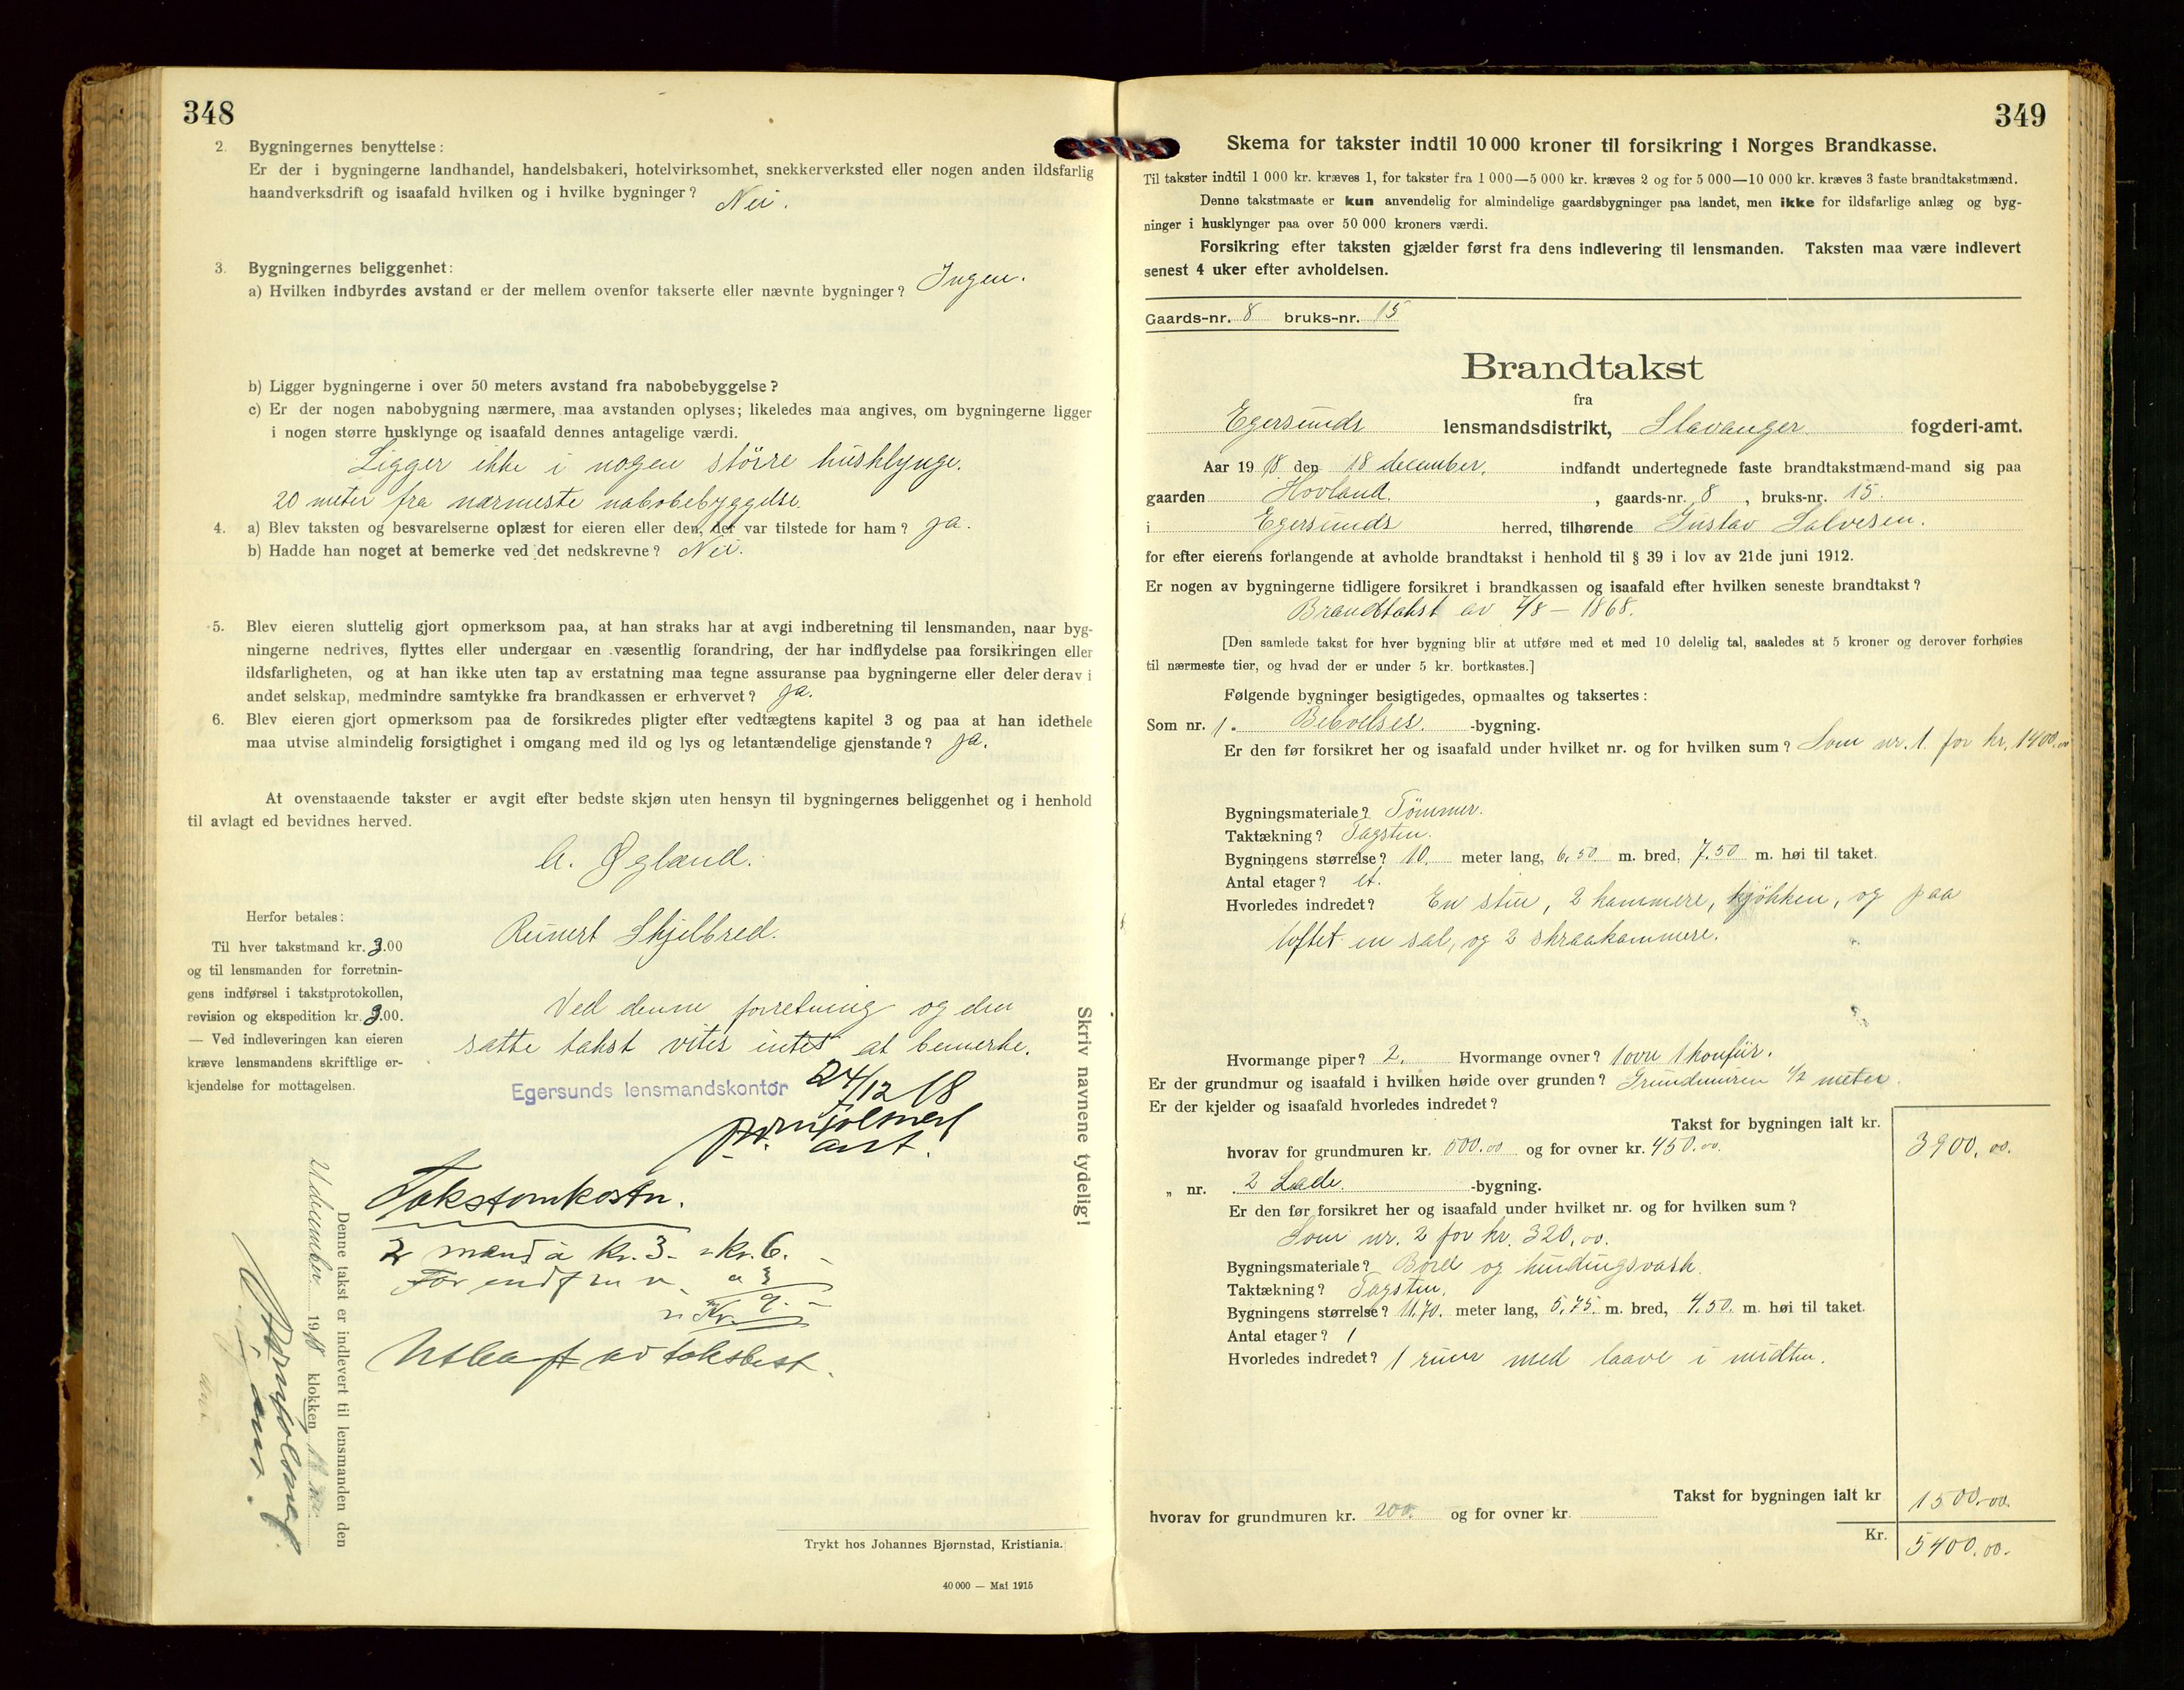 348
2. Bygningernes benyttelse:
Er der i bygningerne landhandel, handelsbakeri, hotelvirksomhet, snekkerverksted eller nogen anden ildsfarlig
haandverksdrift og isaafald hvilken og i hvilke bygninger? Nei.
3. Bygningernes beliggenhet:
a) Hvilken indbyrdes avstand er der mellem ovenfor takserte eller nævnte bygninger? Ingen.
b) Ligger bygningerne i over 50 meters avstand fra nabobebyggelse?
c) Er der nogen nabobygning nærmere, maa avstanden oplyses; likeledes maa angives, om bygningerne ligger
i nogen større husklynge og isaafald dennes antagelige værdi.
Ligger ikke i nogen större husklynge.
20 meter fra nærmeste nabobebyggelse.
4. a) Blev taksten og besvarelserne oplæst for eieren eller den, der var tilstede for ham? ja.
b) Hadde han noget at bemerke ved det nedskrevne? Nei.
5. Blev eieren sluttelig gjort opmerksom paa, at han straks har at avgi indberetning til lensmanden, naar byg-
ningerne nedrives, flyttes eller undergaar en væsentlig forandring, der har indflydelse paa forsikringen eller
ildsfarligheten, og at han ikke uten tap av erstatning maa tegne assuranse paa bygningerne eller deler derav i
andet selskap, medmindre samtykke fra brandkassen er erhvervet? ja.
6. Blev eieren gjort opmerksom paa de forsikredes pligter efter vedtægtens kapitel 3 og paa at han idethele
maa utvise almindelig forsigtighet i omgang med ild og lys og letantændelige gjenstande? ja.
At ovenstaaende takster er avgit efter bedste skjøn uten hensyn til bygningernes beliggenhet og i henhold
til avlagt ed bevidnes herved.
A. Øgland.
Reinert Skjelbred.
Herfor betales:
Til hver takstmand kr. 3.00
og til lensmanden for forretnin-
gens indførsel i takstprotokollen,
revision og ekspedition kr. 3.00.
— Ved indleveringen kan eieren
kræve lensmandens skriftlige er-
kjendelse for mottagelsen.
Ved denne forretning og den
satte takst vites intet at bemerke.
Egersunds lensmandskontor 24/12 18
ast.
Skriv navnene tydelig!
Takstomkostn.
2 mænd à kr. 3 - kr. 6. -
For
9. -
Denne takst er indlevert til lensmanden den
december 1918 klokken
Trykt hos Johannes Bjørnstad, Kristiania.
40 000 — Mai 1915
349
Skema for takster indtil 10 000 kroner til forsikring i Norges Brandkasse.
Til takster indtil 1 000 kr. kræves 1, for takster fra 1 000—5 000 kr. kræves 2 og for 5 000—10 000 kr. kræves 3 faste brandtakstmænd.
Denne takstmaate er kun anvendelig for almindelige gaardsbygninger paa landet, men ikke for ildsfarlige anlæg og byg-
ninger i husklynger paa over 50 000 kroners værdi.
Forsikring efter taksten gjælder først fra dens indlevering til lensmanden. Taksten maa være indlevert
senest 4 uker efter avholdelsen.
Gaards-nr. 8 bruks-nr. 15
Brandtakst
fra
Egersunds lensmandsdistrikt, Stavanger fogderi-amt.
Aar 1918 den 18 december. indfandt undertegnede faste brandtakstmænd-mand sig paa
gaarden Hovland, gaards-nr. 8, bruks-nr. 15.
i Egersunds herred, tilhørende Gustav Salvesen.
for efter eierens forlangende at avholde brandtakst i henhold til § 39 i lov av 21de juni 1912.
Er nogen av bygningerne tidligere forsikret i brandkassen og isaafald efter hvilken seneste brandtakst?
Brandtakst av 7/8 - 1868.
[Den samlede takst for hver bygning blir at utføre med et med 10 delelig tal, saaledes at 5 kroner og derover forhøies
til nærmeste tier, og hvad der er under 5 kr. bortkastes.]
Følgende bygninger besigtigedes, opmaaltes og taksertes:
Som nr. 1. Beboelses -bygning.
Er den før forsikret her og isaafald under hvilket nr. og for hvilken sum? Som nr. 1 for kr. 1400.00
Bygningsmateriale? Tömmer.
Taktækning? Tagsten.
Bygningens størrelse? 10. meter lang, 6,50 m. bred, 7.50 m. høi til taket.
Antal etager? et.
Hvorledes indredet? En stue, 2 kammere, kjökken, og paa
loftet en sal, og 2 skraakammere.
Hvormange piper? 2. Hvormange ovner? 1 ovn 1 komfür.
Er der grundmur og isaafald i hvilken høide over grunden? Grundmuren 1/2 meter.
Er der kjelder og isaafald hvorledes indredet?
Takst for bygningen ialt kr.
hvorav for grundmuren kr. 500.00 og for ovner kr. 450.00. 3900.00.
„ nr. 2 Lade. -bygning.
Er den før forsikret her og isaafald under hvilket nr. og for hvilken sum?
Som nr. 2 for kr. 320.00.
Bygningsmateriale? Bord og bindingsværk.
Taktækning? Tagsten.
Bygningens størrelse? 11.70. meter lang, 5,75. m. bred, 4.50. m. høi til taket.
Antal etager? 1
Hvorledes indredet? 1 rum med laave i midten.
Takst for bygningen ialt kr 1500.00.
hvorav for grundmuren kr. 200. og for ovner kr.
Kr. 5400.00.